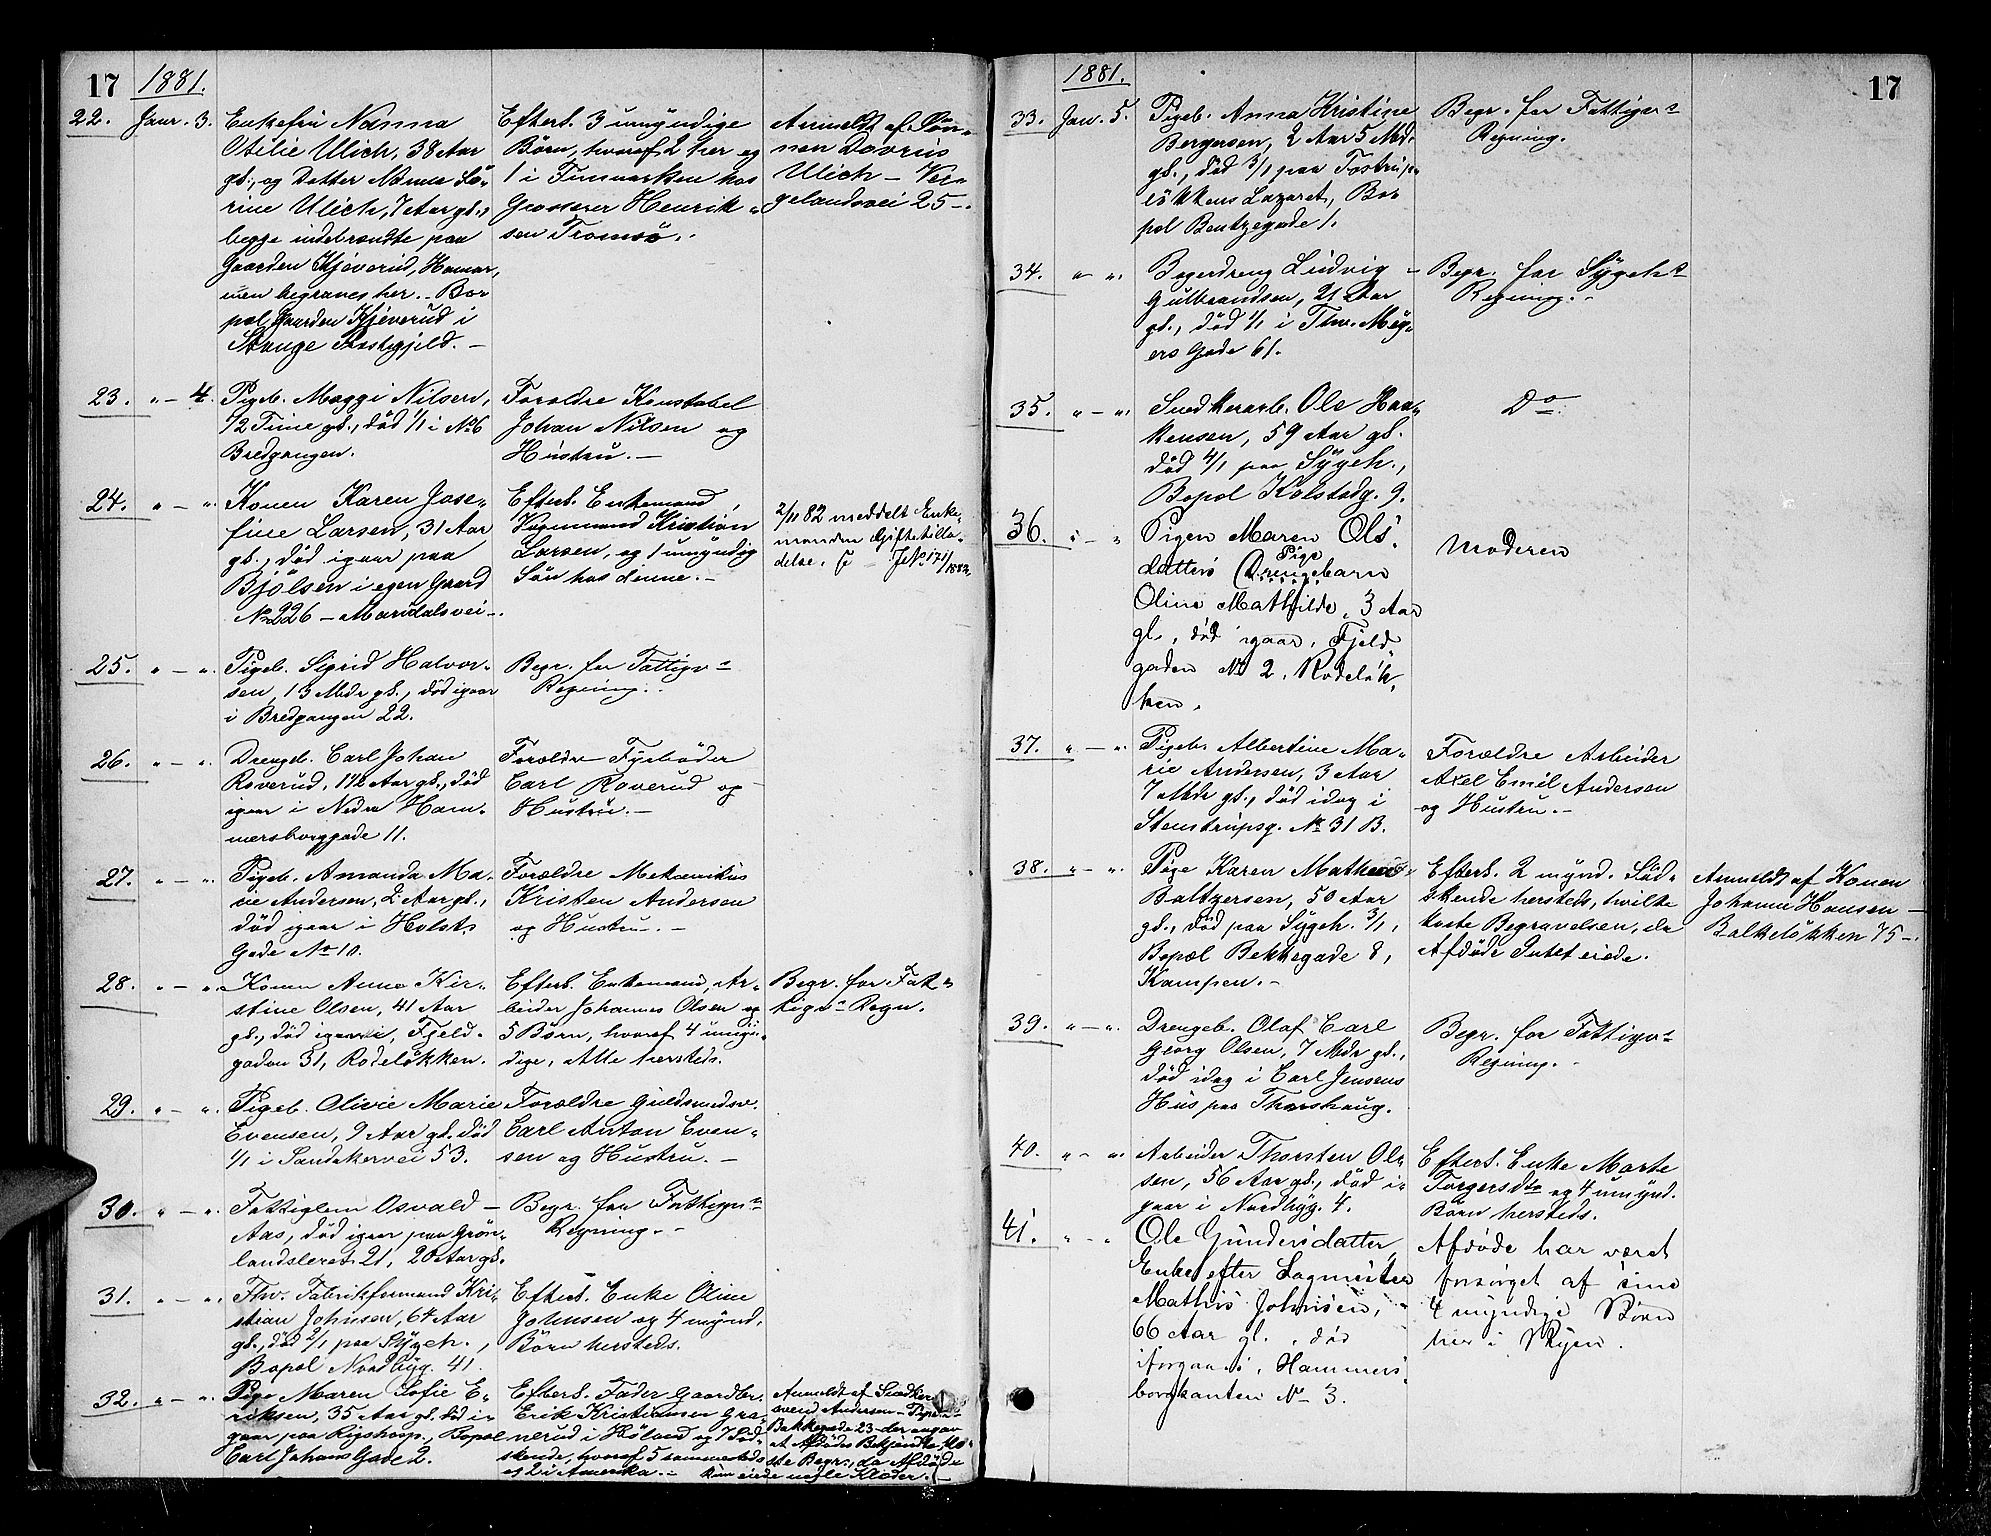 17
1881.
22.
Janr. 3.
Enkefru Nanna
Otilie Ulich, 38 Aar
gl., og Datter Nanna Sö-
rine Ulich, 7 Aar gl.,
begge indebrændte paa
Gaarden Kjéverud, Hamar,
men begraves her. - Bo-
pæl Gaarden Kjéverud i
Stange Præstegjeld. -
Efterl. 3 umyndige
Børn, hvoraf 2 her og
1 i Finmarken hos
Grosserer Henrik-
sen Tromsö.
Anmeldt af Søn-
nen
Ulich - Ver-
gelandsvei 25 -.
23.
" - 4.
Pigeb. Maggi Nilsen,
1/2 Time gl., død 1/1 i No 6
Bredgangen.
Forældre Konstabel
Johan Nilsen og
Hustru. -
24.
" - ".
Konen Karen Jose-
fine Larsen, 31 Aar
gl., død igaar paa
Bjölsen i egen Gaard
No 226 - Maridalsvei -.
Efterl. Enkemand,
Vognmand Kristian
Larsen, og 1 umyndig
Sön hos denne. -
2/11 82 meddelt Enke-
manden Giftetilla-
delse.
25.
" - ".
Pigeb. Sigrid Halvor-
sen, 13 Mdr gl., død igaar
i Bredgangen 22.
Begr. for Fattigv.
Regning.
26.
" - ".
Drengeb. Carl Johan
Roverud, 1 1/2 Aar gl., död
igaar i Nedre Ham-
mersborggade 11.
Forældre Fyrböder
Carl Roverud og
Hustru. -
27.
" - ".
Pigeb. Amanda Ma-
rie Andersen, 2 Aar gl.,
död igaar i Holsts
Gade No 10.
Forældre Mekanikus
Kristen Andersen
og Hustru. -
28.
" - ".
Konen Anne Kir-
stine Olsen, 41 Aar
gl., död igaar i, Fjeld-
gaden 31, Rodelökken.
Efterl. Enkemand, Ar-
beider Johannes Olsen og
5 Börn, hvoraf 4 umyn-
dige, alle hersteds.
Begr. for Fat-
tigv. Regn.
29.
" - ".
Pigeb. Olivie Marie
Evensen, 9 Aar gl. död
1/1 i Sandakervei 53.
Forældre Guldsmedsv.
Carl Anton Even-
sen og Hustru. -
30.
" - ".
Fattiglem Osvald -
Aas, död igaar paa Grön-
landsleret 21, 20 Aar gl.
Begr. for Fattigv.
Regning. -
31.
" - ".
Fhv. Fabrikformand Kri-
stian Johnsen, 64 Aar
gl., död 2/1 paa Sygeh.,
Bopæl Nordbyg. 41.
Efterl. Enke Oline
Johnsen og 4 mynd.
Börn hersteds.
32.
" - ".
Pige Maren Sofie E-
riksen, 35 Aar gl. död i-
gaar paa Rigshosp., Bopæl
Carl Johans Gade 2.
Efterl. Fader Gaardbr.
Erik Kristiansen Gra-
nerud i Höland og 7 Söd-
skende, hvoraf 5 sammesteds
og 2 i Amerika. -
Anmeldt af Snedker-
svend Andersen -
Bakkegade 23 - der opgav
at Afdödes Bekjendte
ste Begr., da Afdöde
kun eiede nogle Klæder.
17
1881.
33.
Jan. 5.
Pigeb. Anna Kristine
Bergersen, 2 Aar 5 Mdr
gl., död 3/1 paa Tostrup-
lökkens Lazaret, Bo-
pæl Bentzegade 1.
Begr. for Fattigv.
Regning.
34.
" - ".
Bogerdreng Ludvig -
Gulbrandsen, 21 Aar
gl., död 1/1 i Thv. Mey-
ers Gade 61.
Begr. for Sygeh.
Regning. -
35.
" - ".
Snedkerarb. Ole Haa-
kensen, 59 Aar gl.
död 4/1 paa Sygeh.,
Bopæl Kolstadg. 9.
Do
36.
" - "
Pigen Maren Ols-
datters Drengebarn
Pige
Oline Mathilde, 3 Aar
gl., död igaar, Fjeld-
gaden No 2, Rodelök-
ken.
Moderen
37.
" - ".
Pigeb. Albertine Ma-
rie Andersen, 3 Aar
7 Mdr gl., död idag i
Stenstrupsg. No 31 B.
Forældre Arbeider
Axel Emil Andersen
og Hustru. -
38.
" - ".
Pige Karen Mathea
Baltzersen, 50 Aar
gl., död paa Sygeh. 3/1,
Bopæl Bekkegade 8,
Kampen. -
Efterl. 2 mynd. Söd-
skende hersteds, hvilke
koste Begravelsen, da
Afdöde Intet eiede.
Anmeldt af Konen
Johanne Hansen -
Balkelökken 75 -.
39.
" - ".
Drengeb. Olaf Carl
Georg Olsen, 7 Mdr gl.,
död idag i Carl Jensens
Hus paa Thorshaug.
Begr. for Fattigv.
Regning. -
40.
" - ".
Arbeider Thorsten Ol-
sen, 56 Aar gl., död i-
gaar i Nordbyg. 4.
Efterl. Enke Marte
Torgersdtr og 4 umynd.
Börn hersteds.
41.
" - "
Ole Gundersdatter,
Enke efter Sagmester
Mathis Johnsen,
66 Aar gl., död
iforgaars i, Hammers-
borgkanten No 3.
Afdöde har været
forsörget af sine
4 myndige Börn
her i Byen.
17